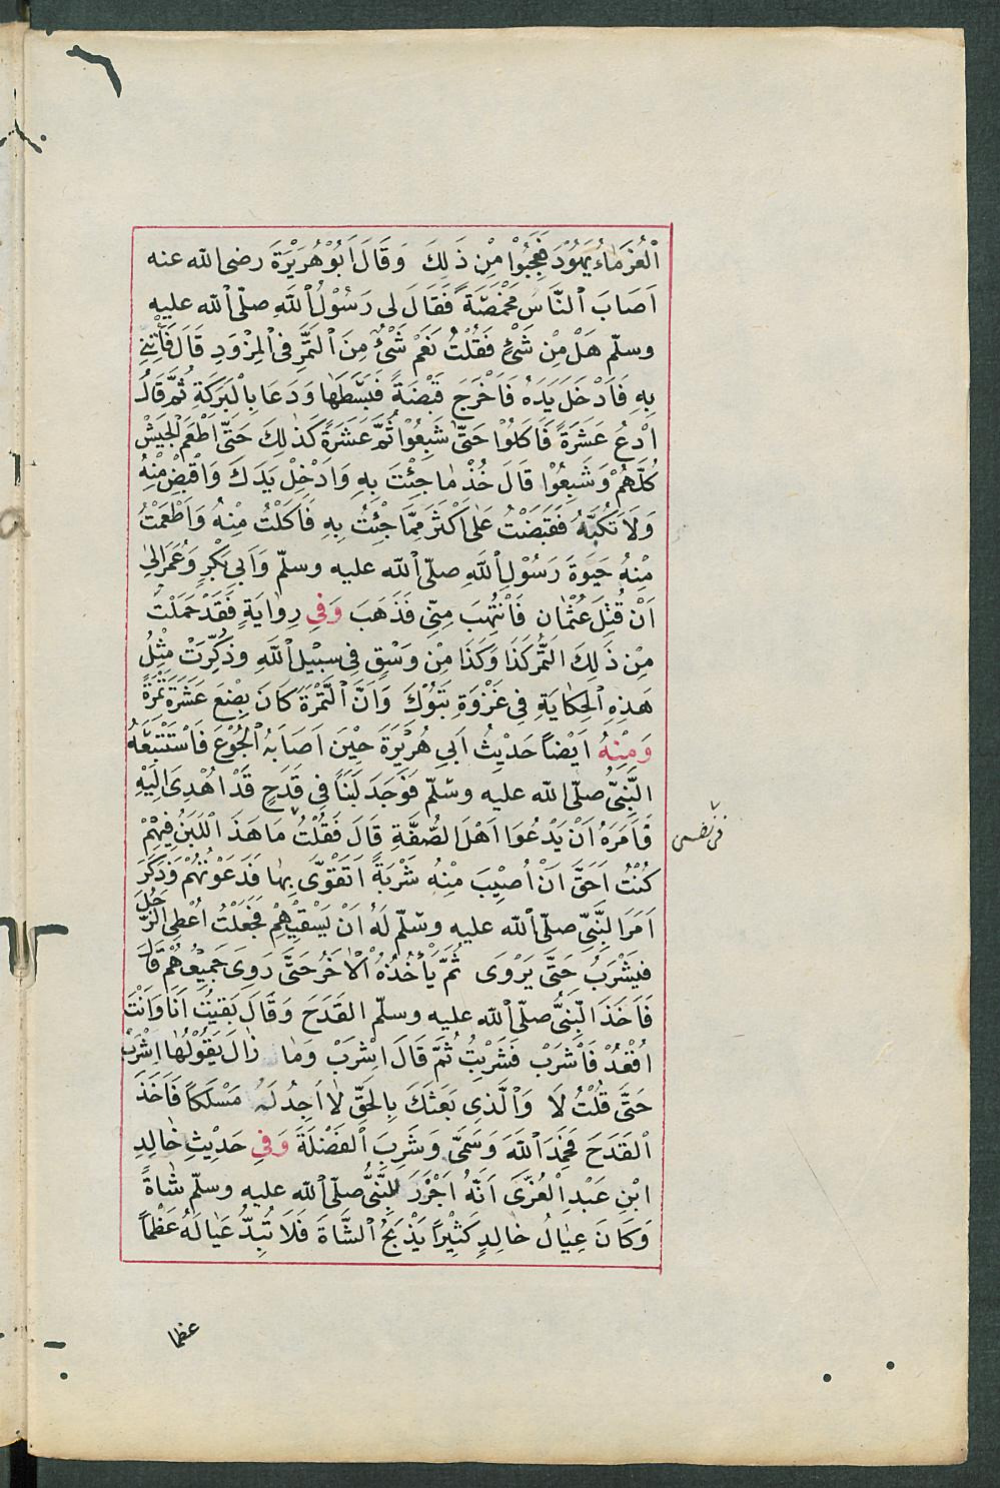 اَلْغُرَمَاءُ يَهُوْدَ فَعَجِبُوْا مِنْ ذَلِكَ وَقَالَ اَبُوْهُرَيْرَةَ رضى الله عنه
اَصَابَ النَّاسَ مَخْمَصَةً فَقَالَ لى رَسُوْلُ اللّٰهِ صلّى الله عليه
وسلّم هَلْ مِنْ شَىْءٍ فَقُلْتُ نَعَمْ شَىْءٌ مِنَ الْتَّمْرِ فى الْمِزْوَدِ قَالَ فَأْتِنِىْ
بِهِ فَاَدْخَلَ يَدَهُ فَاَخْرَجَ قَبْضَةً فَبَسَطَهَا وَدَعَا بِالْبَرَكَةِ ثُمَّ قَالَ
ادْعُ عَشَرَةً فَاَكَلُوْا حَتَّى شَبِعُوْا ثُمَّ عَشَرَةً كَذٰلِكَ حَتَّى اَطْعَمَ الْجَيْشَ
كُلَّهُمْ وَشَبِعُوْا قَالَ خُذْ مٰا جِئْتَ بِهِ وَاَدْخِلْ يَدَكَ وَاقْبِضْ مِنْهُ
وَلاَ تَكُبَّهُ فَقَبَضْتُ عَلٰى اَكْثَرَ مِمَّا جِئْتُ بِهِ فَاَكَلْتُ مِنْهُ وَاَطْعَمْتُ
مِنْهُ حَيٰوةَ رَسُوْلِ اللّٰهِ صلّى الله عليه وسلّم وَاَبِى بَكْرٍ وَعُمَرَ اِلىٰ
اَنْ قُتِلَ عُثْمٰان فَانْتُهِبَ مِنّىِ فَذَهَبَ وَفِى رِوٰايَةٍ فَقَدْ حَمَلْتُ
مِنْ ذَلِكَ التَّمْرِ كَذَا وَكَذَا مِنْ وَسْقٍ فِى سبيْلِ اللّٰهِ وَذُكِرَتْ مِثْلُ
هَذِهِ الْحِكَايَةِ فِى غَزْوَةِ تَبُوْكَ وَاَنَّ الْتَّمْرَةَ كَانَ بِضْعَ عَشَرَةَ تَمْرَةً
وَمِنْهُ اَيْضاً حَدِيْثُ اَبى هُرَيْرَةَ حِيْنَ اَصَابَهُ الْجُوْعَ فَاسْتَتْبَعَهُ
النَّبِىُّ صلّى الله عليه وسّلم فَوَجَدَ لَبَناً فِى قَدَحٍ قَدْ اُهْدِىَ اِلَيْهِ
وَاَمَرَهُ اَنْ يَدْعُوَا اَهْلَ الصُّفَّةِ قَالَ فَقُلْتُ مَا هَذَ اللَّبَنُ فِيْهِمْ
كُنْتُ اَحَقَّ اَنْ اُصِيْبَ مِنْهُ شَرْبَةً اَتَقَوّٰى بِهٰا فَدَعَوْتُهُمْ وَذَكَرَ
اَمَرَ النَّبِىِّ صلّى الله عليه وسّلم لَهُ اَنْ يَسْقِيَهُمْ فَجَعَلْتُ اُعْطِى الرَّجُلَ
فَيَشْرَبُ حَتَّى يَرْوَى ثُمَّ يَأْخُذُهُ الْاٰخَرُ حَتَّى رَوِىَ جَمِيْعُهُمْ قَالَ
فَاَخَذَ النَّبِىُّ صلّى الله عليه وسلّم القَدَحَ وَقَالَ بَقِيْتُ اَنَا وَاَنْتَ
اُقْعُدْ فَاشْرَبْ فَشَرِبْتُ ثُمَّ قَالَ اشْرَبْ وَمٰا زٰالَ يَقُوْلُهٰا اشْرَبْ
حَتَّى قُلْتُ لاَ وَالَّذِى بَعَثَكَ بِالحَقِّ لاٰ اَجِدُ لَهُ مَسْلَكاً فَاَخَذَ
الْقَدَحَ فَحَمِدَ اللّٰهَ وَسَمَّى وَشَرِبَ الْفَضْلَةَ وَفِى حَدِيْثِ خٰالِدِ
ابْنِ عَبْدِ الْعُزَّىَ اَنَّهُ اَجْزَرَ للنَّبِىُّ صلّى الله عليه وسلّم شٰاةً
وَكَانَ عِيٰالُ خٰالِدٍ كَثِيْراً يَذْبَحُ الْشَّاةَ فَلاَ تُبِدُّ عِيٰالَهُ عَظْماً
عظما